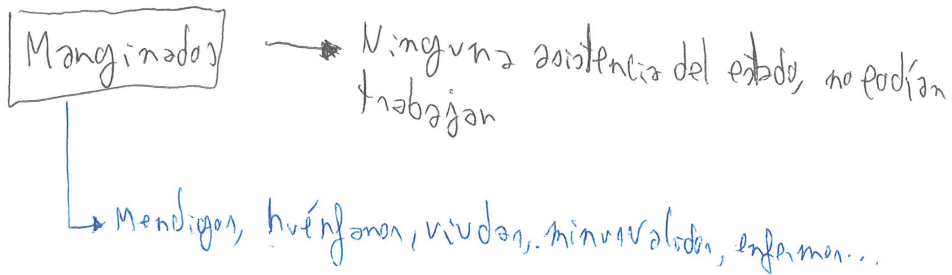 Marginados
Ninguna asistencia del estado, no podían
trabajar
Mendigos, huérfanos, viudas, minusvalidos, enfermos...